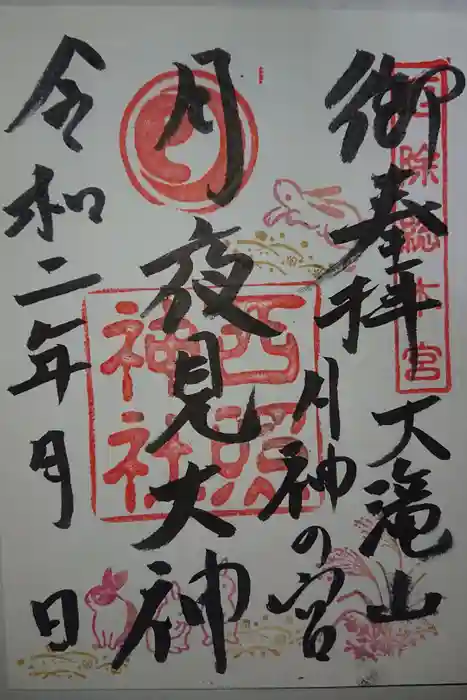 御奉拝
大滝山
月神の宮
月夜見大神
令和二年月日
厄除総本宮
西照神社